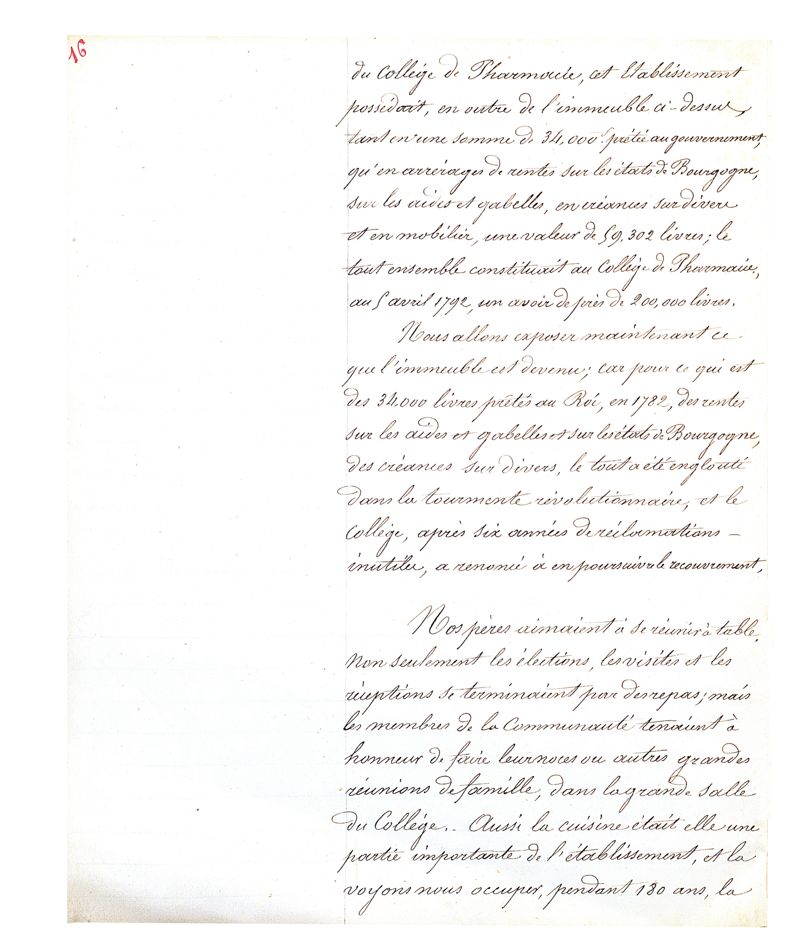 16
du Collége de Pharmacie, cet Etablissement
possédait, en outre de l'immeuble ci-dessus,
tant en une somme de 34,000 f prêtée au gouvernement,
qu'en arrérages de rentes sur les états de Bourgogne,
sur les aides et gabelles, en créances sur divers
et en mobilier, une valeur de 59,302 livres; le
tout ensemble constituait au Collége de Pharmacie,
au 5 avril 1792, un avoir de près de 200,000 livres.
Nous allons exposer maintenant ce
que l'immeuble est devenu; car pour ce qui est
des 34,000 livres prêtés au Roi, en 1782, des rentes
sur les aides et gabelles et sur les états de Bourgogne,
des créances sur divers, le tout a été englouti
dans la tourmente révolutionnaire, et le
Collége, après six années de réclamations –
inutiles, a renoncé à en poursuivre le recouvrement.
Nos pères aimaient à se réunir à table.
Non seulement les élections, les visites et les
réceptions se terminaient par des repas; mais
les membres de la Communauté tenaient à
honneur de faire leur noces ou autres grandes
réunions de famille, dans la grande salle
du Collége.. Aussi la cuisine était elle une
partie importante de l'établissement, et la
voyons nous occuper, pendant 180 ans, la